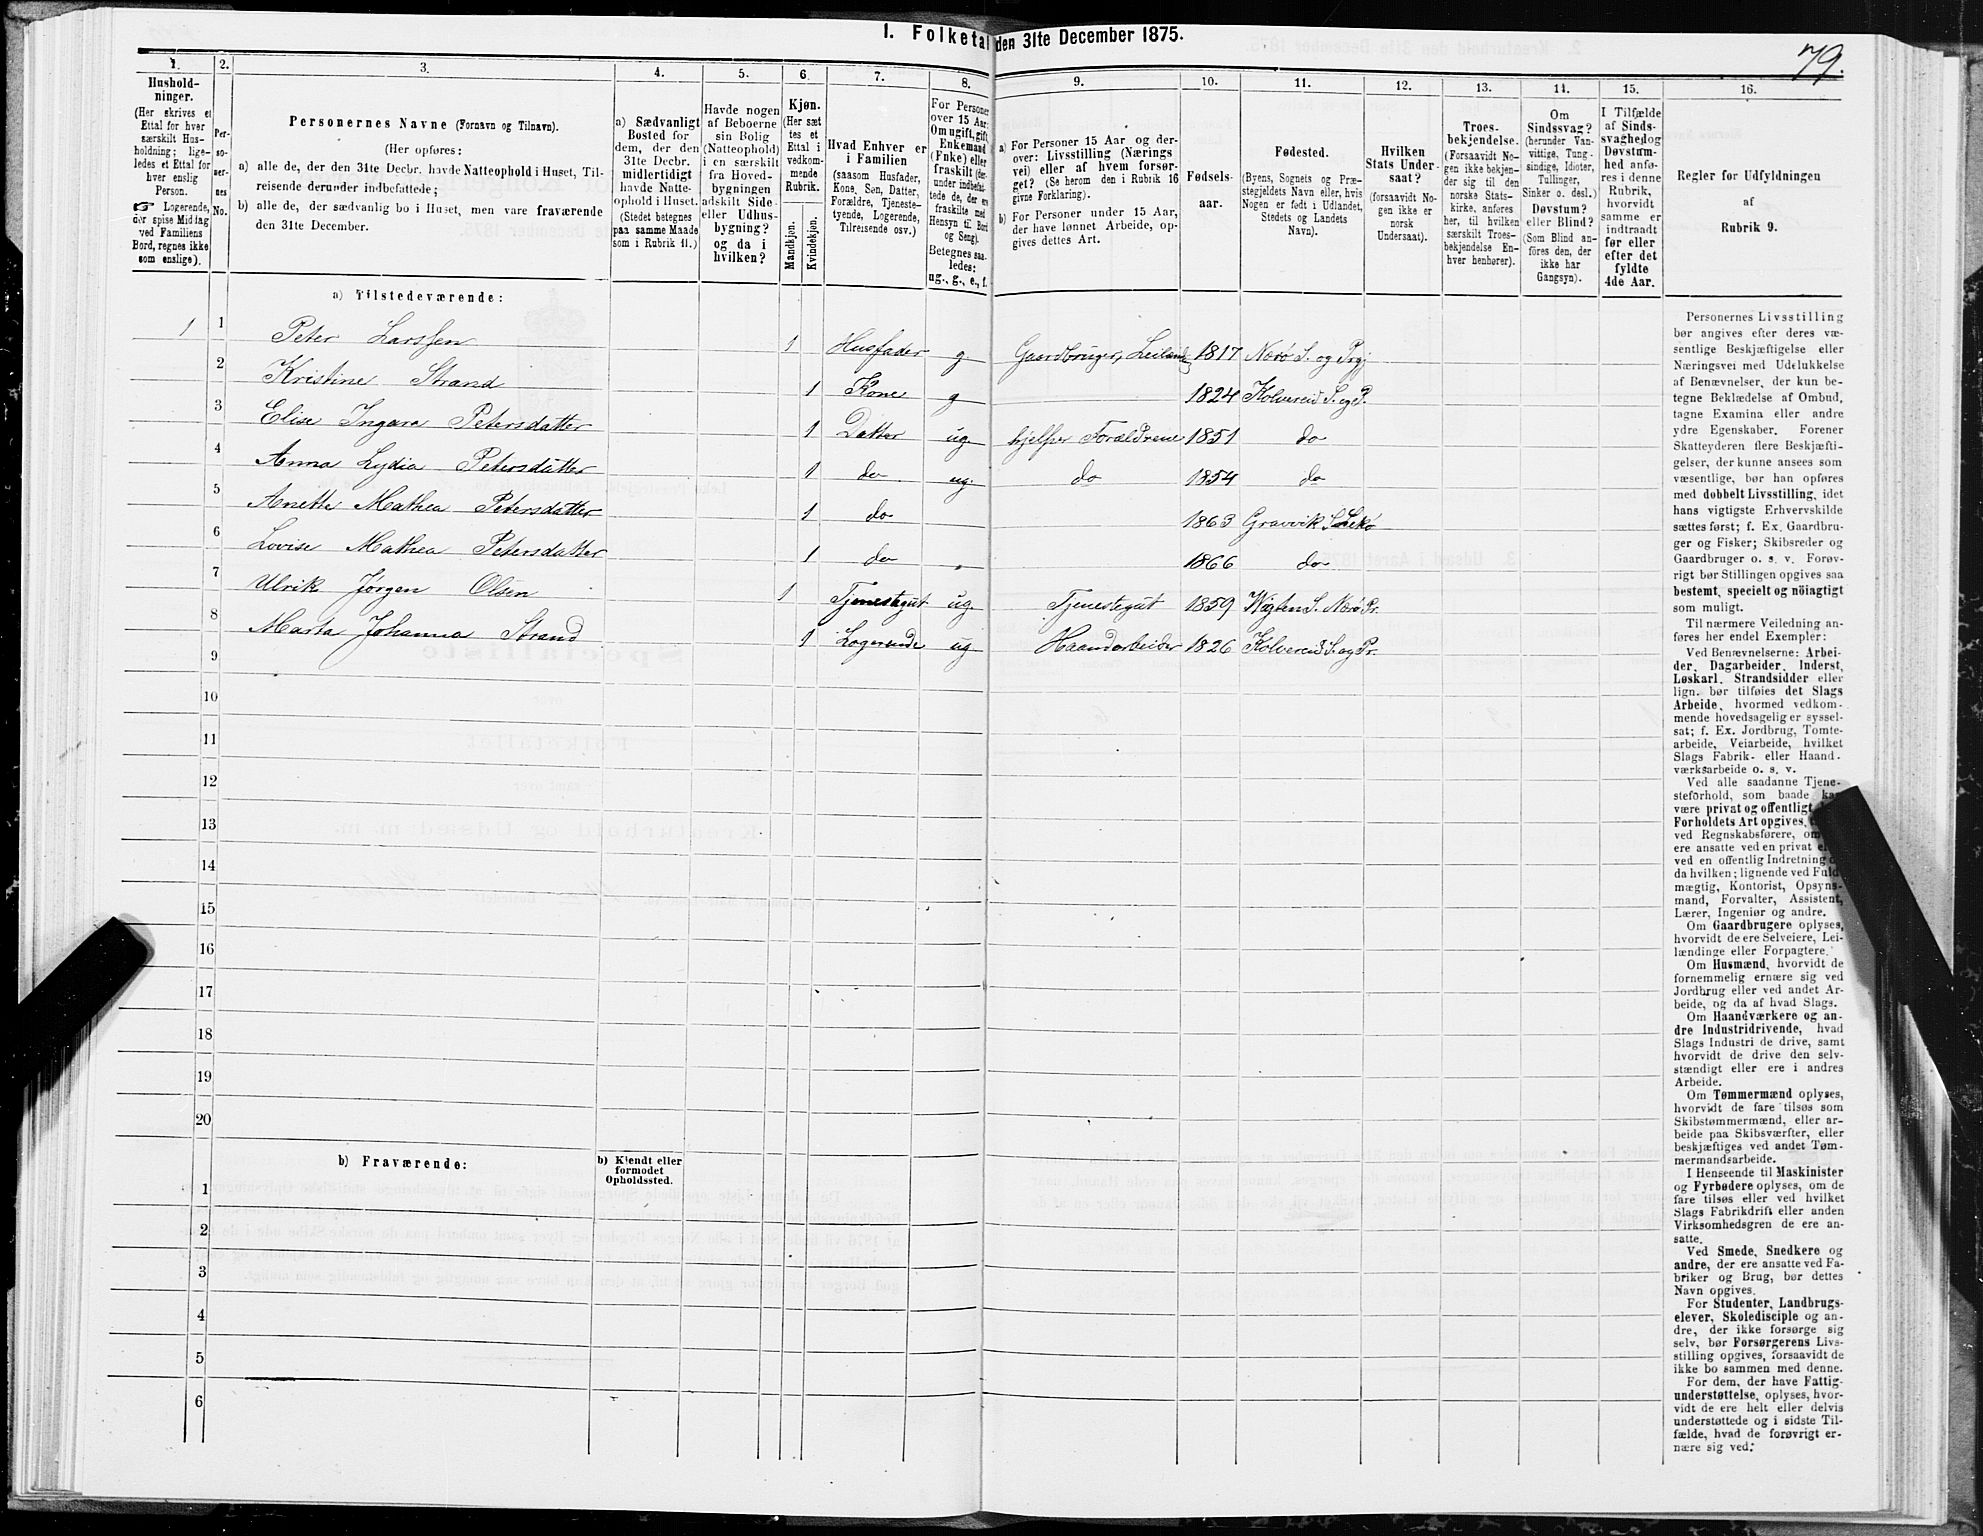 1. Folketal den 31te December 1875.
79.
1.
Hushold-
ninger.
(Her skrives et
Ettal for hver
særskilt Hus-
holdning; lige-
ledes et Ettal for
hver enslig
Person.
☞ Logerende,
der spise Middag
ved Familiens
Bord, regnes ikke
som enslige).
2.
Per-
so-
ner-
nes
No.
3.
Personernes Navne (Fornavn og Tilnavn).
(Her opføres:
a) alle de, der den 31te Decbr. havde Natteophold i Huset, Til-
reisende derunder indbefattede;
b) alle de, der sædvanlig bo i Huset, men vare fraværende
den 31te December.
4.
a) Sædvanligt
Bosted for
dem, der den
31te Decbr.
midlertidigt
havde Natte-
ophold i Huset.
(Stedet betegnes
paa samme Maade
som i Rubrik 11.)
5.
Havde nogen
af Beboerne
sin Bolig
(Natteophold)
i en særskilt
fra Hoved-
bygningen
adskilt Side-
eller Udhus-
bygning?
og da i
hvilken?
6.
Kjøn.
(Her sæt
tes et
Ettal i
vedkom-
mende
Rubrik.
Mandkjøn.
Kvindekjøn.
7.
Hvad Enhver er
i Familien
(saasom Husfader,
Kone, Søn, Datter,
Forældre, Tjeneste-
tyende, Logerende,
Tilreisende osv.)
8.
For Personer
over 15 Aar:
Om ugift, gift,
Enkemand
(Enke) eller
fraskilt (der-
under indbefat-
tede de, der ere
fraskilte med
Hensyn til Bord
og Seng).
Betegnes saa-
ledes:
ug., g., e., f.
9.
a) For Personer 15 Aar og der-
over: Livsstilling (Nærings
vei) eller af hvem forsør-
get? (Se herom den i Rubrik 16
givne Forklaring).
b) For Personer under 15 Aar,
der have lønnet Arbeide, op-
gives dettes Art.
10.
Fødsels-
aar.
11.
Fødested.
(Byens, Sognets og Præ-
stegjeldets Navn eller, hvis
Nogen er født i Udlandet,
Stedets og Landets
Navn).
12.
Hvilken
Stats Under-
saat?
(forsaavidt No-
gen ikke er
norsk
Undersaat).
13.
Troes-
bekjendelse.
(Forsaavidt No-
gen ikke bekjen-
der sig til den
norske Stats-
kirke, anføres
her, til hvilken
særskilt Troes-
bekjendelse En-
hver henhører).
14.
Om
Sindssvag?
(herunder Van-
vittige, Tung-
sindige, Idioter,
Tullinger,
Sinker o. desl.)
Døvstum?
eller Blind?
(Som Blind an-
føres den, der
ikke har
Gangsyn).
15.
I Tilfælde
af Sinds-
svaghed og
Døvstum-
hed anfø-
res i denne
Rubrik,
hvorvidt
samme er
indtraadt
før eller
efter det
fyldte
4de Aar.
16.
Regler for Udfyldningen
af
Rubrik 9.
a) Tilstedeværende:
1 1 Peter Larssen 1 Husfader g Gaardbruger, Leilend 1817 Nærø S. og Prgj
2 Kristine Strand 1 Kone g 1824 Kolvereid S. og P.
3 Elise Ingara Petersdatter 1 Datter ug hjelper Forældrene 1851 do
4 Anna Lydia Petersdatter 1 do ug. do 1854 do
5 Anette Mathea Petersdatter 1 do 1863 Gravvik S. Lekø
6 Lovise Mathea Petersdatter 1 do 1866 do
7 Ulrik Jørgen Olsen 1 Tjenestegut ug Tjenestegut 1859 Vigten S. Nærø Pr.
8 Marta Johanna Strand 1 Logerende ug Haandarbeider 1826 Kolvereid S. og Pr.
9
10
11
12
13
14
15
16
17
18
19
20
b) Fraværende:
b) Kjendt eller
formodet
Opholdssted.
1
2
3
4
5
6
Personernes Livsstilling
bør angives efter deres væ-
sentlige Beskjæftigelse eller
Næringsvei med Udelukkelse
af Benævnelser, der kun be-
tegne Beklædelse af Ombud,
tagne Examina eller andre
ydre Egenskaber. Forener
Skatteyderen flere Beskjæfti-
gelser, der kunne ansees som
væsentlige, bør han opføres
med dobbelt Livsstilling, idet
hans vigtigste Erhvervskilde
sættes først; f. Ex. Gaardbru-
ger og Fisker; Skibsreder og
Gaardbruger o. s. v. Forøv-
rigt bør Stillingen opgives saa
bestemt, specielt og nöiagtigt
som muligt.
Til nærmere Veiledning an-
føres her endel Exempler:
Ved Benævnelserne: Arbei-
der, Dagarbeider, Inderst,
Løskarl, Strandsidder eller
lign. bør tilføies det Slags
Arbeide, hvormed vedkom-
mende hovedsagelig er syssel-
sat; f. Ex. Jordbrug, Tomte-
arbeide, Veiarbeide, hvilket
Slags Fabrik- eller Haand-
værksarbeide o. s. v.
Ved alle saadanne Tjene-
steforhold, som baade kan
være privat og offentligt,
Forholdets Art opgives,
ved Regnskabsførere, om
ere ansatte ved en privat
ved en offentlig Indretning
da hvilken; lignende ved Fuld-
mægtig, Kontorist, Opsyns-
mand, Forvalter, Assistent,
Lærer, Ingeniør og andre.
Om Gaardbrugere oplyses,
hvorvidt de ere Selveiere, Lei-
lændinge eller Forpagtere.
Om Husmænd, hvorvidt de
fornemmelig ernære sig ved
Jordbrug eller ved andet Ar-
beide, og da af hvad Slags.
Om Haandværkere og an-
dre Industridrivende, hvad
Slags Industri de drive, samt
hvorvidt de drive den selv-
stændigt eller ere i andres
Arbeide.
Om Tømmermænd oplyses,
hvorvidt de fare tilsøs som
Skibstømmermænd, eller ar-
beide paa Skibsværfter, eller
beskjæftiges ved andet Tøm-
mermandsarbeide.
I Henseende til Maskinister
og Fyrbødere oplyses, om de
fare tilsøs eller ved hvilket
Slags Fabrikdrift eller anden
Virksomhedsgren de ere an-
satte.
Ved Smede, Snedkere og
andre, der ere ansatte ved Fa-
briker og Brug, bør dettes
Navn opgives.
For Studenter, Landbrugs-
elever, Skoledisciple og an-
dre, der ikke forsørge sig
selv, bør Forsørgerens Livs-
stilling opgives, forsaavidt de
ikke bo sammen med denne.
For dem, der have Fattig-
understøttelse, oplyses, hvor-
vidt de ere helt eller delvis
understøttede og i sidste Til-
fælde, hvad de forøvrigt er-
nære sig ved.